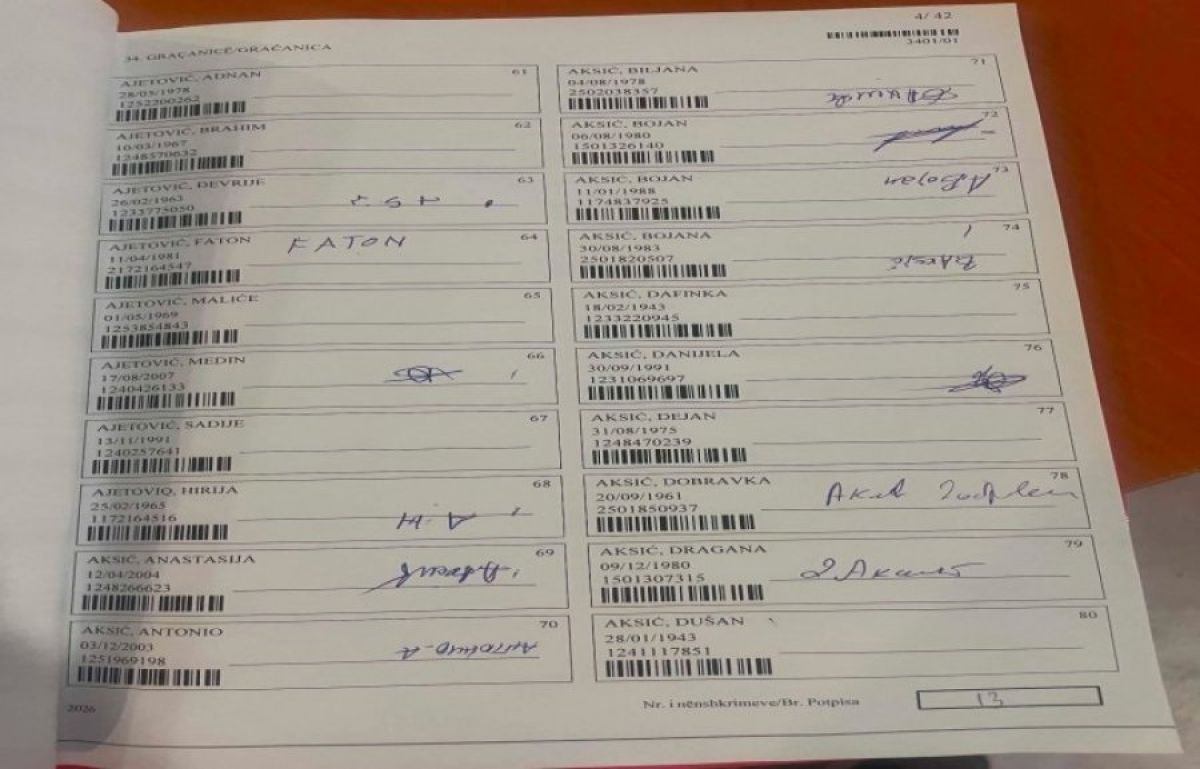 4/ 42
3401/01
34. GRAÇANICË/GRAČANICA
AJETOVIĆ, ADNAN 61
28/05/1978
1252200262
AJETOVIĆ, BRAHIM 62
10/03/1967
1248570632
AJETOVIĆ, DEVRIJE 63
26/02/1963
1233775050
AJETOVIĆ, FATON 64
FATON
11/04/1981
2172164547
AJETOVIĆ, MALIĆE 65
01/05/1969
1253854843
AJETOVIĆ, MEDIN 66
17/08/2007
1240426133
AJETOVIĆ, SADIJE 67
13/11/1991
1240257641
AJETOVIQ, HIRIJA 68
25/02/1965
1172164516
A.H
AKSIĆ, ANASTASIJA 69
12/04/2004
1248266623
AKSIĆ, ANTONIO 70
03/12/2003
1251969198
Антонио А
AKSIĆ, BILJANA 71
04/08/1978
2502038357
AKSIĆ, BOJAN 72
06/08/1980
1501326140
AKSIĆ, BOJAN 73
11/01/1988
1174837925
A Bojan
AKSIĆ, BOJANA 74
30/08/1983
2501820507
BAksić
AKSIĆ, DAFINKA 75
18/02/1943
1233220945
AKSIĆ, DANIJELA 76
30/09/1991
1231069697
AKSIĆ, DEJAN 77
31/08/1975
1248470239
AKSIĆ, DOBRAVKA 78
20/09/1961
2501850937
AKSIĆ, DRAGANA 79
09/12/1980
1501307315
AKSIĆ, DUŠAN 80
28/01/1943
1241117851
2026
Nr. i nënshkrimeve/Br. Potpisa 13